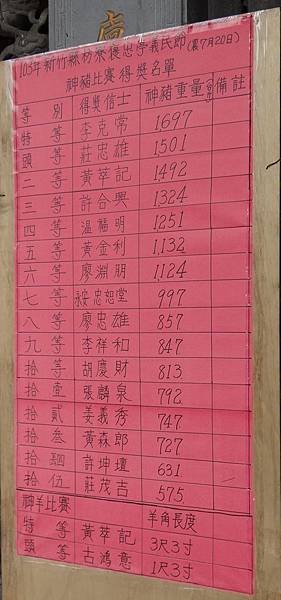 103年新竹縣枋寮褒忠亭義民節(農7月20日)
神豬比賽得獎名單
等別 得獎信士 神豬重量(台斤) 備註
特等 李克常 1697
頭等 莊忠雄 1501
二等 黃萃記 1492
三等 許合興 1324
四等 温福明 1251
五等 黃金利 1132
六等 廖淵朋 1124
七等 永安忠恕堂 997
八等 廖忠雄 857
九等 李祥和 847
拾等 胡慶財 813
拾壹等 張麟泉 792
拾貳等 姜義秀 747
拾叁等 黃森郎 727
拾肆等 許坤壇 631
拾伍等 莊茂吉 575
神羊比賽 羊角長度
特等 黃萃記 3尺3寸
頭等 古鴻意 1尺3寸